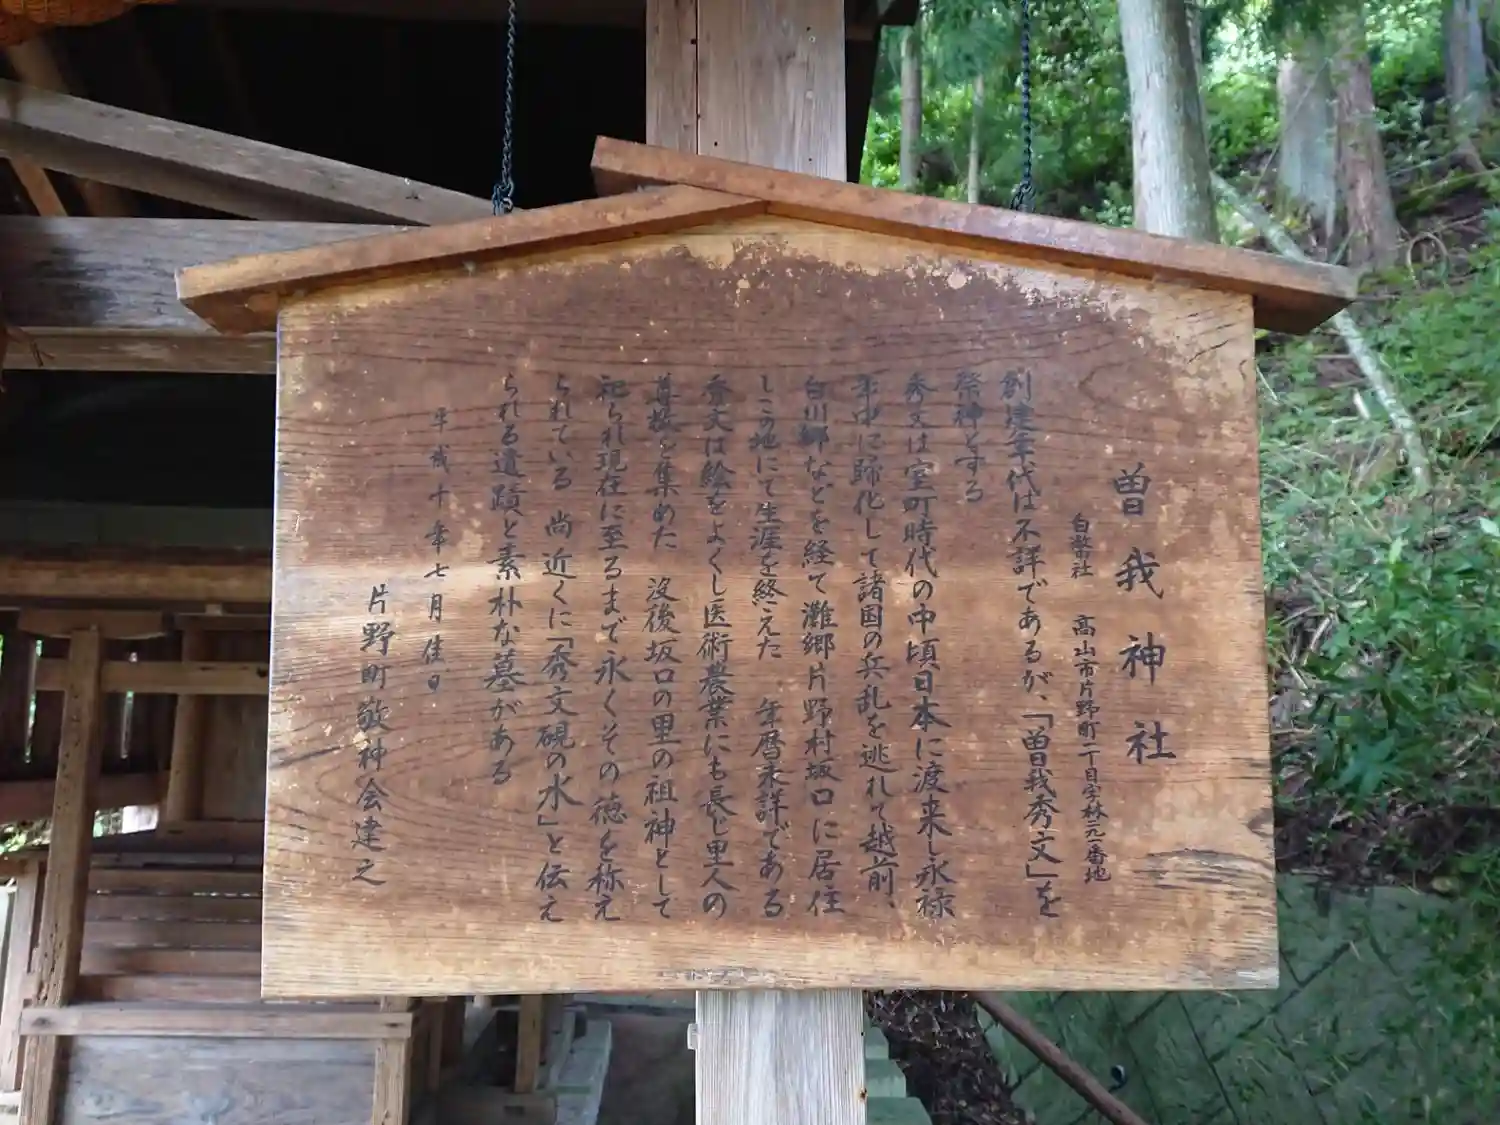 曽我神社
白幣社 高山市片野町一丁目字林二九一番地
創建年代は不詳であるが、「曽我秀文」を
祭神とする
秀文は室町時代の中頃日本に渡来し永禄
年中に帰化して諸国の兵乱を逃れて越前、
白川郷などを経て灘郷片野村坂口に居住
しこの地にて生涯を終えた 年暦未詳である
秀文は絵をよくし医術農業にも長じ里人の
尊敬を集めた 没後坂口の里の祖神として
祀られ現在に至るまで永くその徳を称え
られている 尚近くに「秀文硯の水」と伝え
られる遺蹟と素朴な墓がある
平成十年七月佳日
片野町敬神会建之